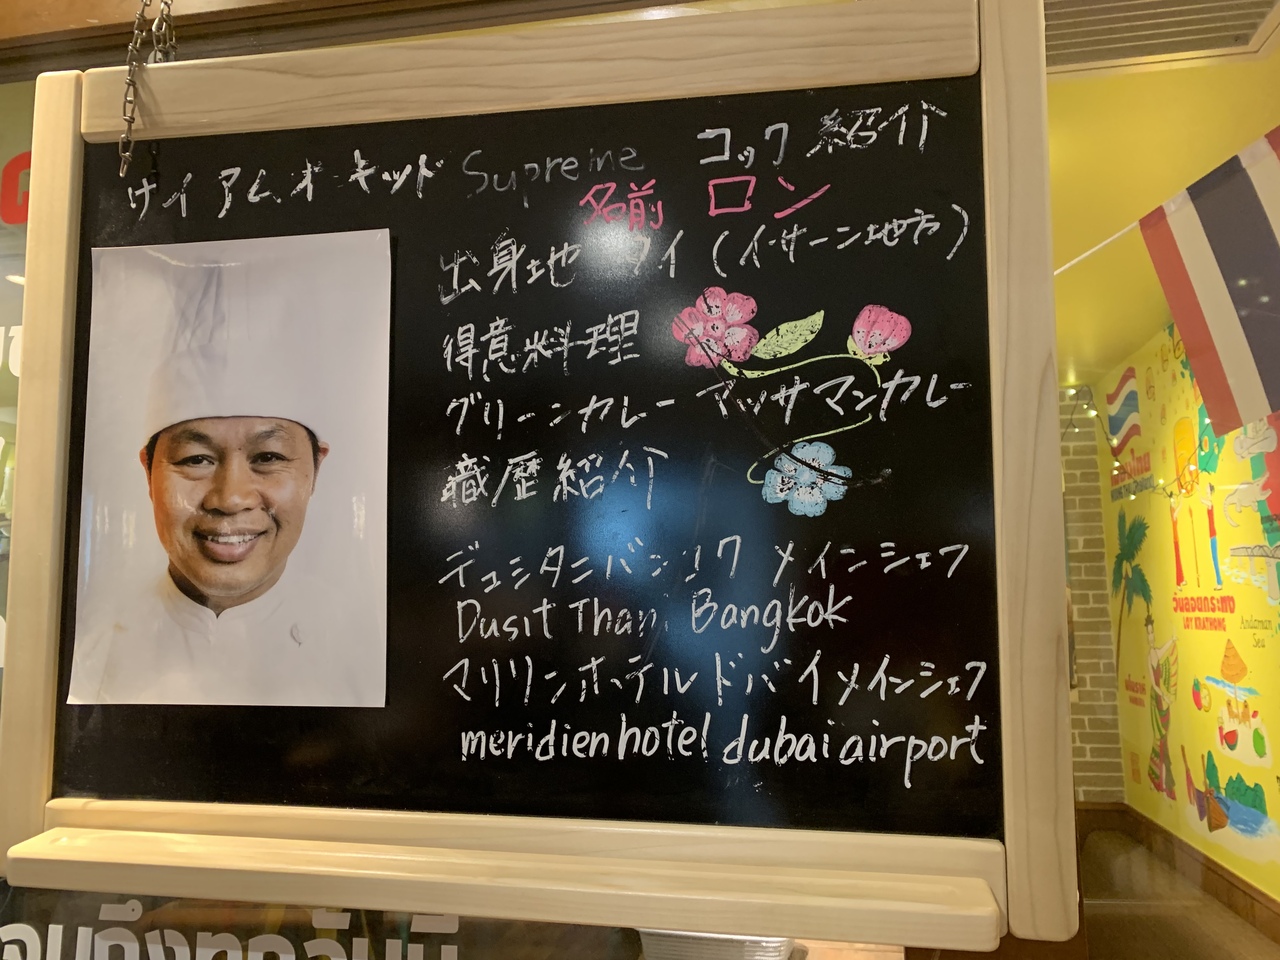 サイアムオーキッド Supreme コック紹介
名前 ロン
出身地 タイ (イサーン地方)
得意料理
グリーンカレー マッサマンカレー
職歴紹介
デュシタニバンコク メインシェフ
Dusit Thani Bangkok
マリリンホテルドバイメインシェフ
meridien hotel dubai airport
วันลอยกระทง
LOY KRATHONG
Andaman
Sea